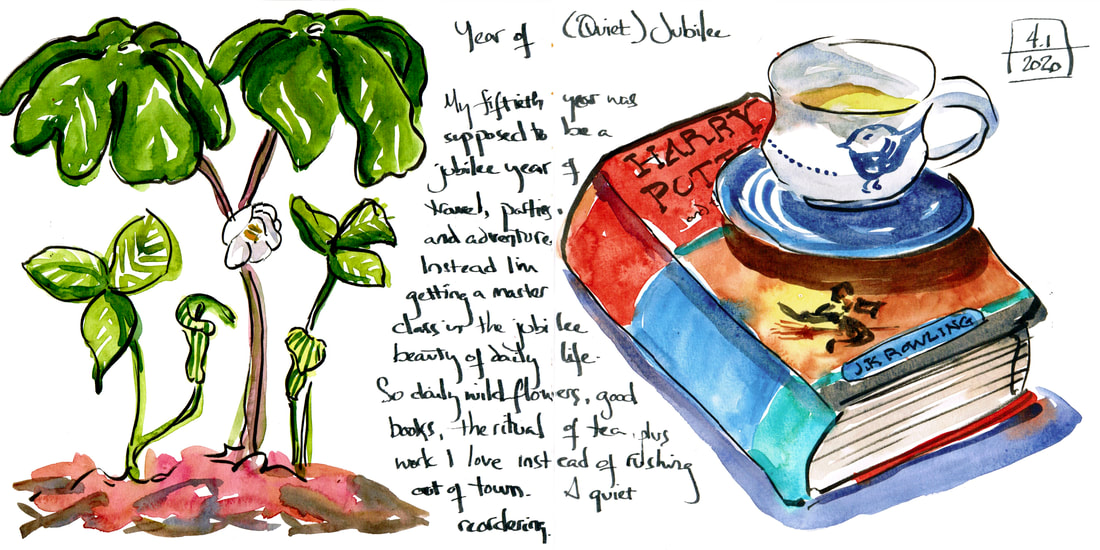 Year of (Quiet) Jubilee
4.1
2020
My fiftieth year was
supposed to be a
jubilee year of
travel, parties,
and adventure
Instead I'm
getting a master
class in the jubilee
beauty of daily life.
So daily wild flowers, good
books, the ritual of tea, plus
work I love instead of rushing
out of town. A quiet
reordering.
HARRY
POTT
and
J.K ROWLING